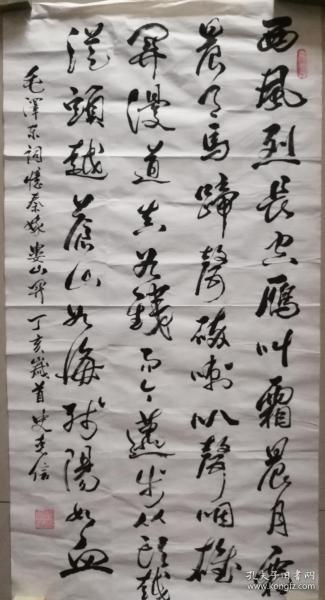 西風烈長空雁叫霜晨月霜
晨月馬蹄聲碎喇叭聲咽雄
關漫道真如鐵而今邁步從頭越
從頭越蒼山如海殘陽如血
毛澤东詞憶秦娥婁山関 丁亥歲首史 信
孔夫子旧书网